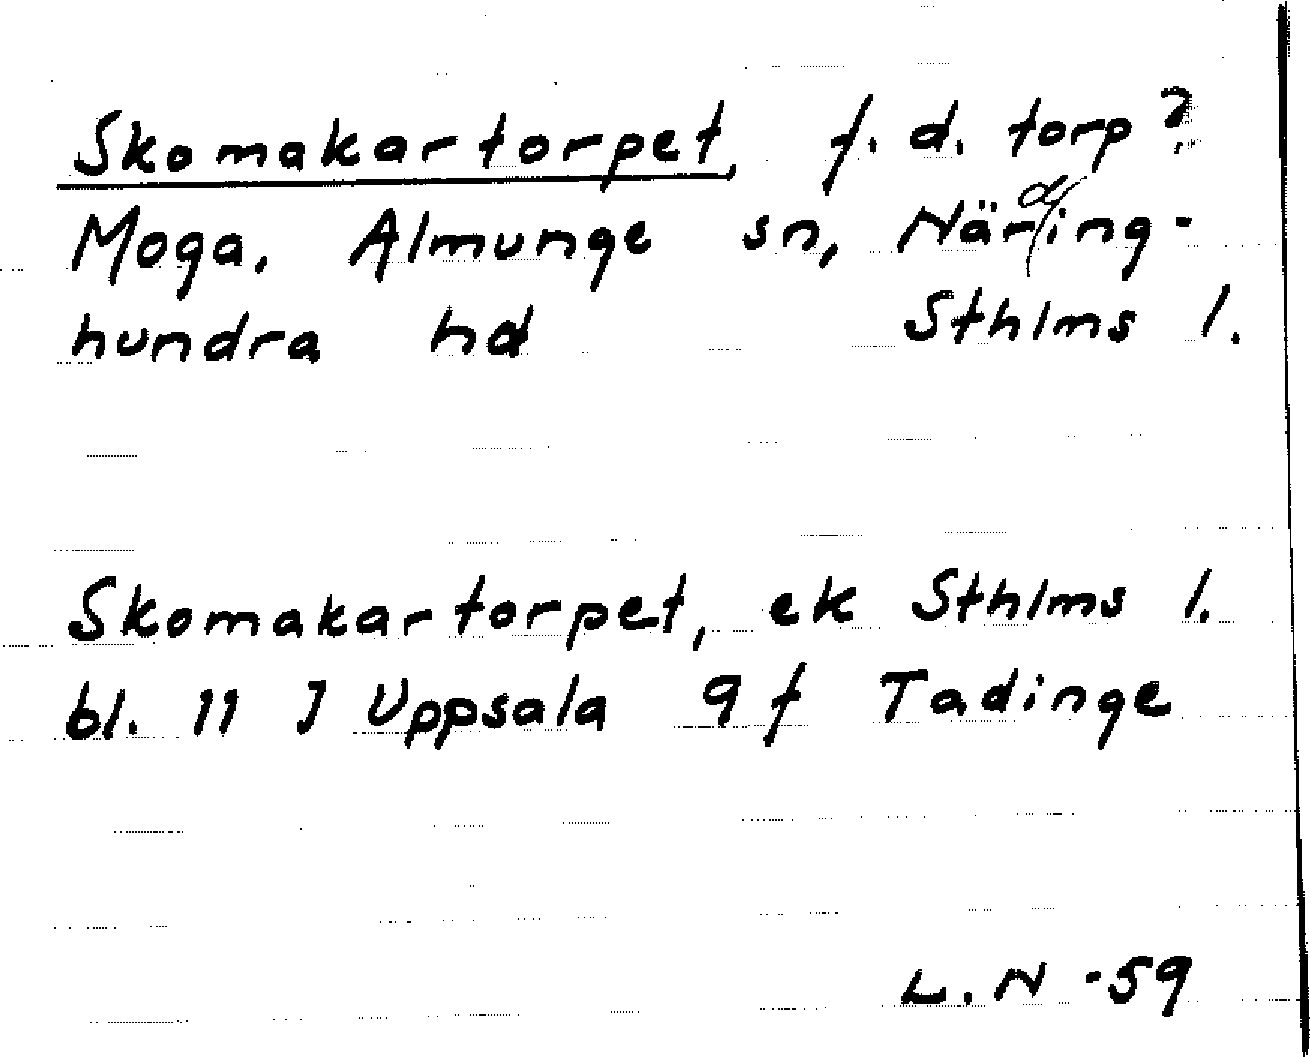 Skomakartorpet, f. d. torp?
Moga, Almunge sn, Närding-
hundra hd Sthlms l.
Skomakartorpet, ek Sthlms l.
bl. 11 J Uppsala 9 f Tadinge
L. N -59